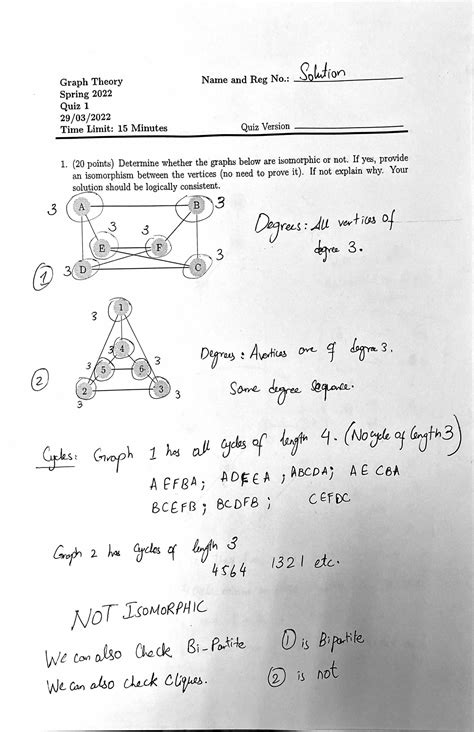 Graph Theory
Spring 2022
Quiz 1
29/03/2022
Time Limit: 15 Minutes
Name and Reg No.: Solution
Quiz Version
1. (20 points) Determine whether the graphs below are isomorphic or not. If yes, provide
an isomorphism between the vertices (no need to prove it). If not explain why. Your
solution should be logically consistent.
3 A B 3
3 3
E F
3 D C 3
1
Degrees: All vertices of
degree 3.
3 1
3 4
3 5 6 3
2 3 3
3
2
Degrees: All vertices are of degree 3.
Same degree sequence.
Cycles: Graph 1 has all cycles of length 4. (No cycle of length 3)
AEFBA; ADFEA; ABCDA; AECBA
BCEFB; BCDFB; CEFDC
Graph 2 has cycles of length 3
4564 1321 etc.
NOT ISOMORPHIC
We can also Check Bi-Partite 1 is Bipartite
We can also check Cliques. 2 is not